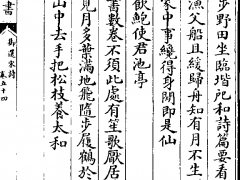 步野田坐臨堦戺和詩篇要看
漁父船且緩歸舟知有月不生
家中事纔得身閒即是仙
飲鮑使君池亭
書數卷不須此處有笙歌厭居
見月多葉滿地飛隨步履鶴於
山中去手把松枝養太和
書
御選宋詩
卷五十四